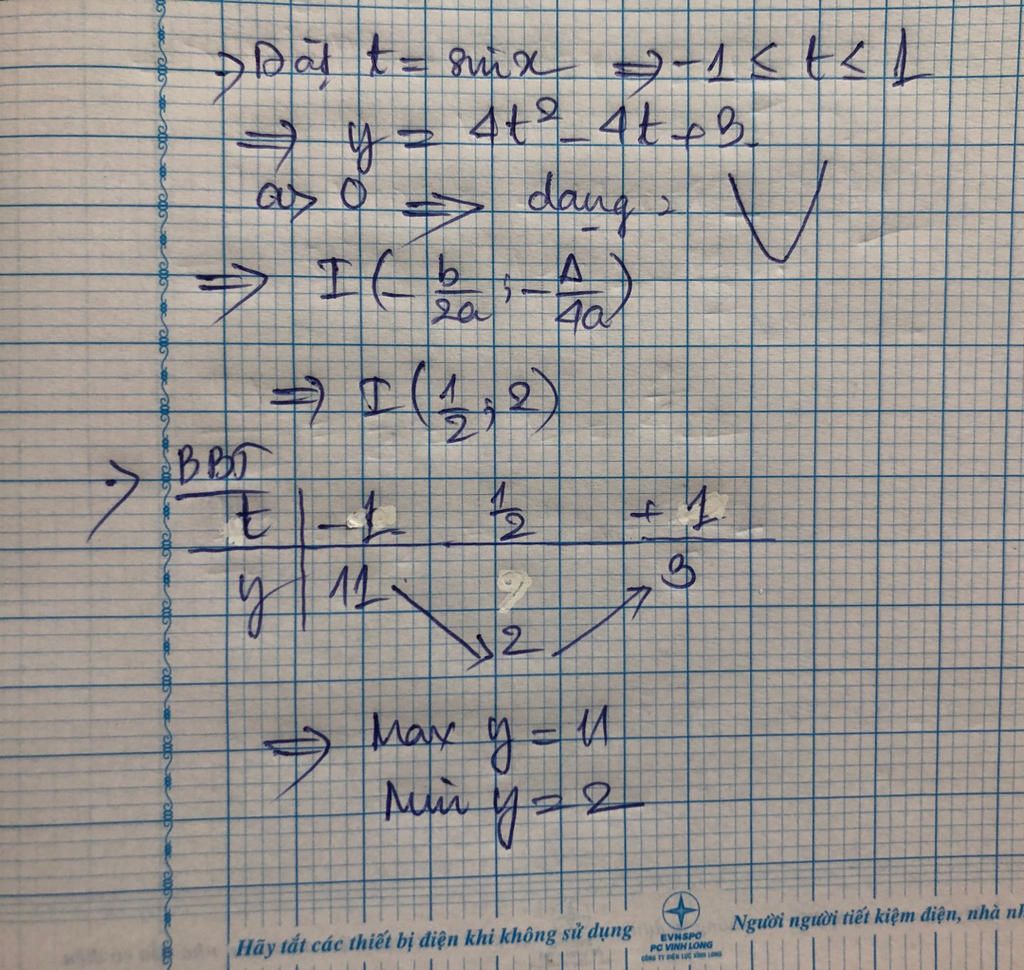 => Đặt t = sin x => -1 ≤ t ≤ 1
=> y = 4t² - 4t + 3
a > 0 => dạng :
=> I (- b/2a ; - Δ/4a)
=> I (1/2 ; 2)
=> BBT
t | -1 1/2 +1
y | 11 2 3
=> Max y = 11
Min y = 2
Hãy tắt các thiết bị điện khi không sử dụng
EVNSPC
PC VINH LONG
CÔNG TY ĐIỆN LỰC VĨNH LONG
Người người tiết kiệm điện, nhà